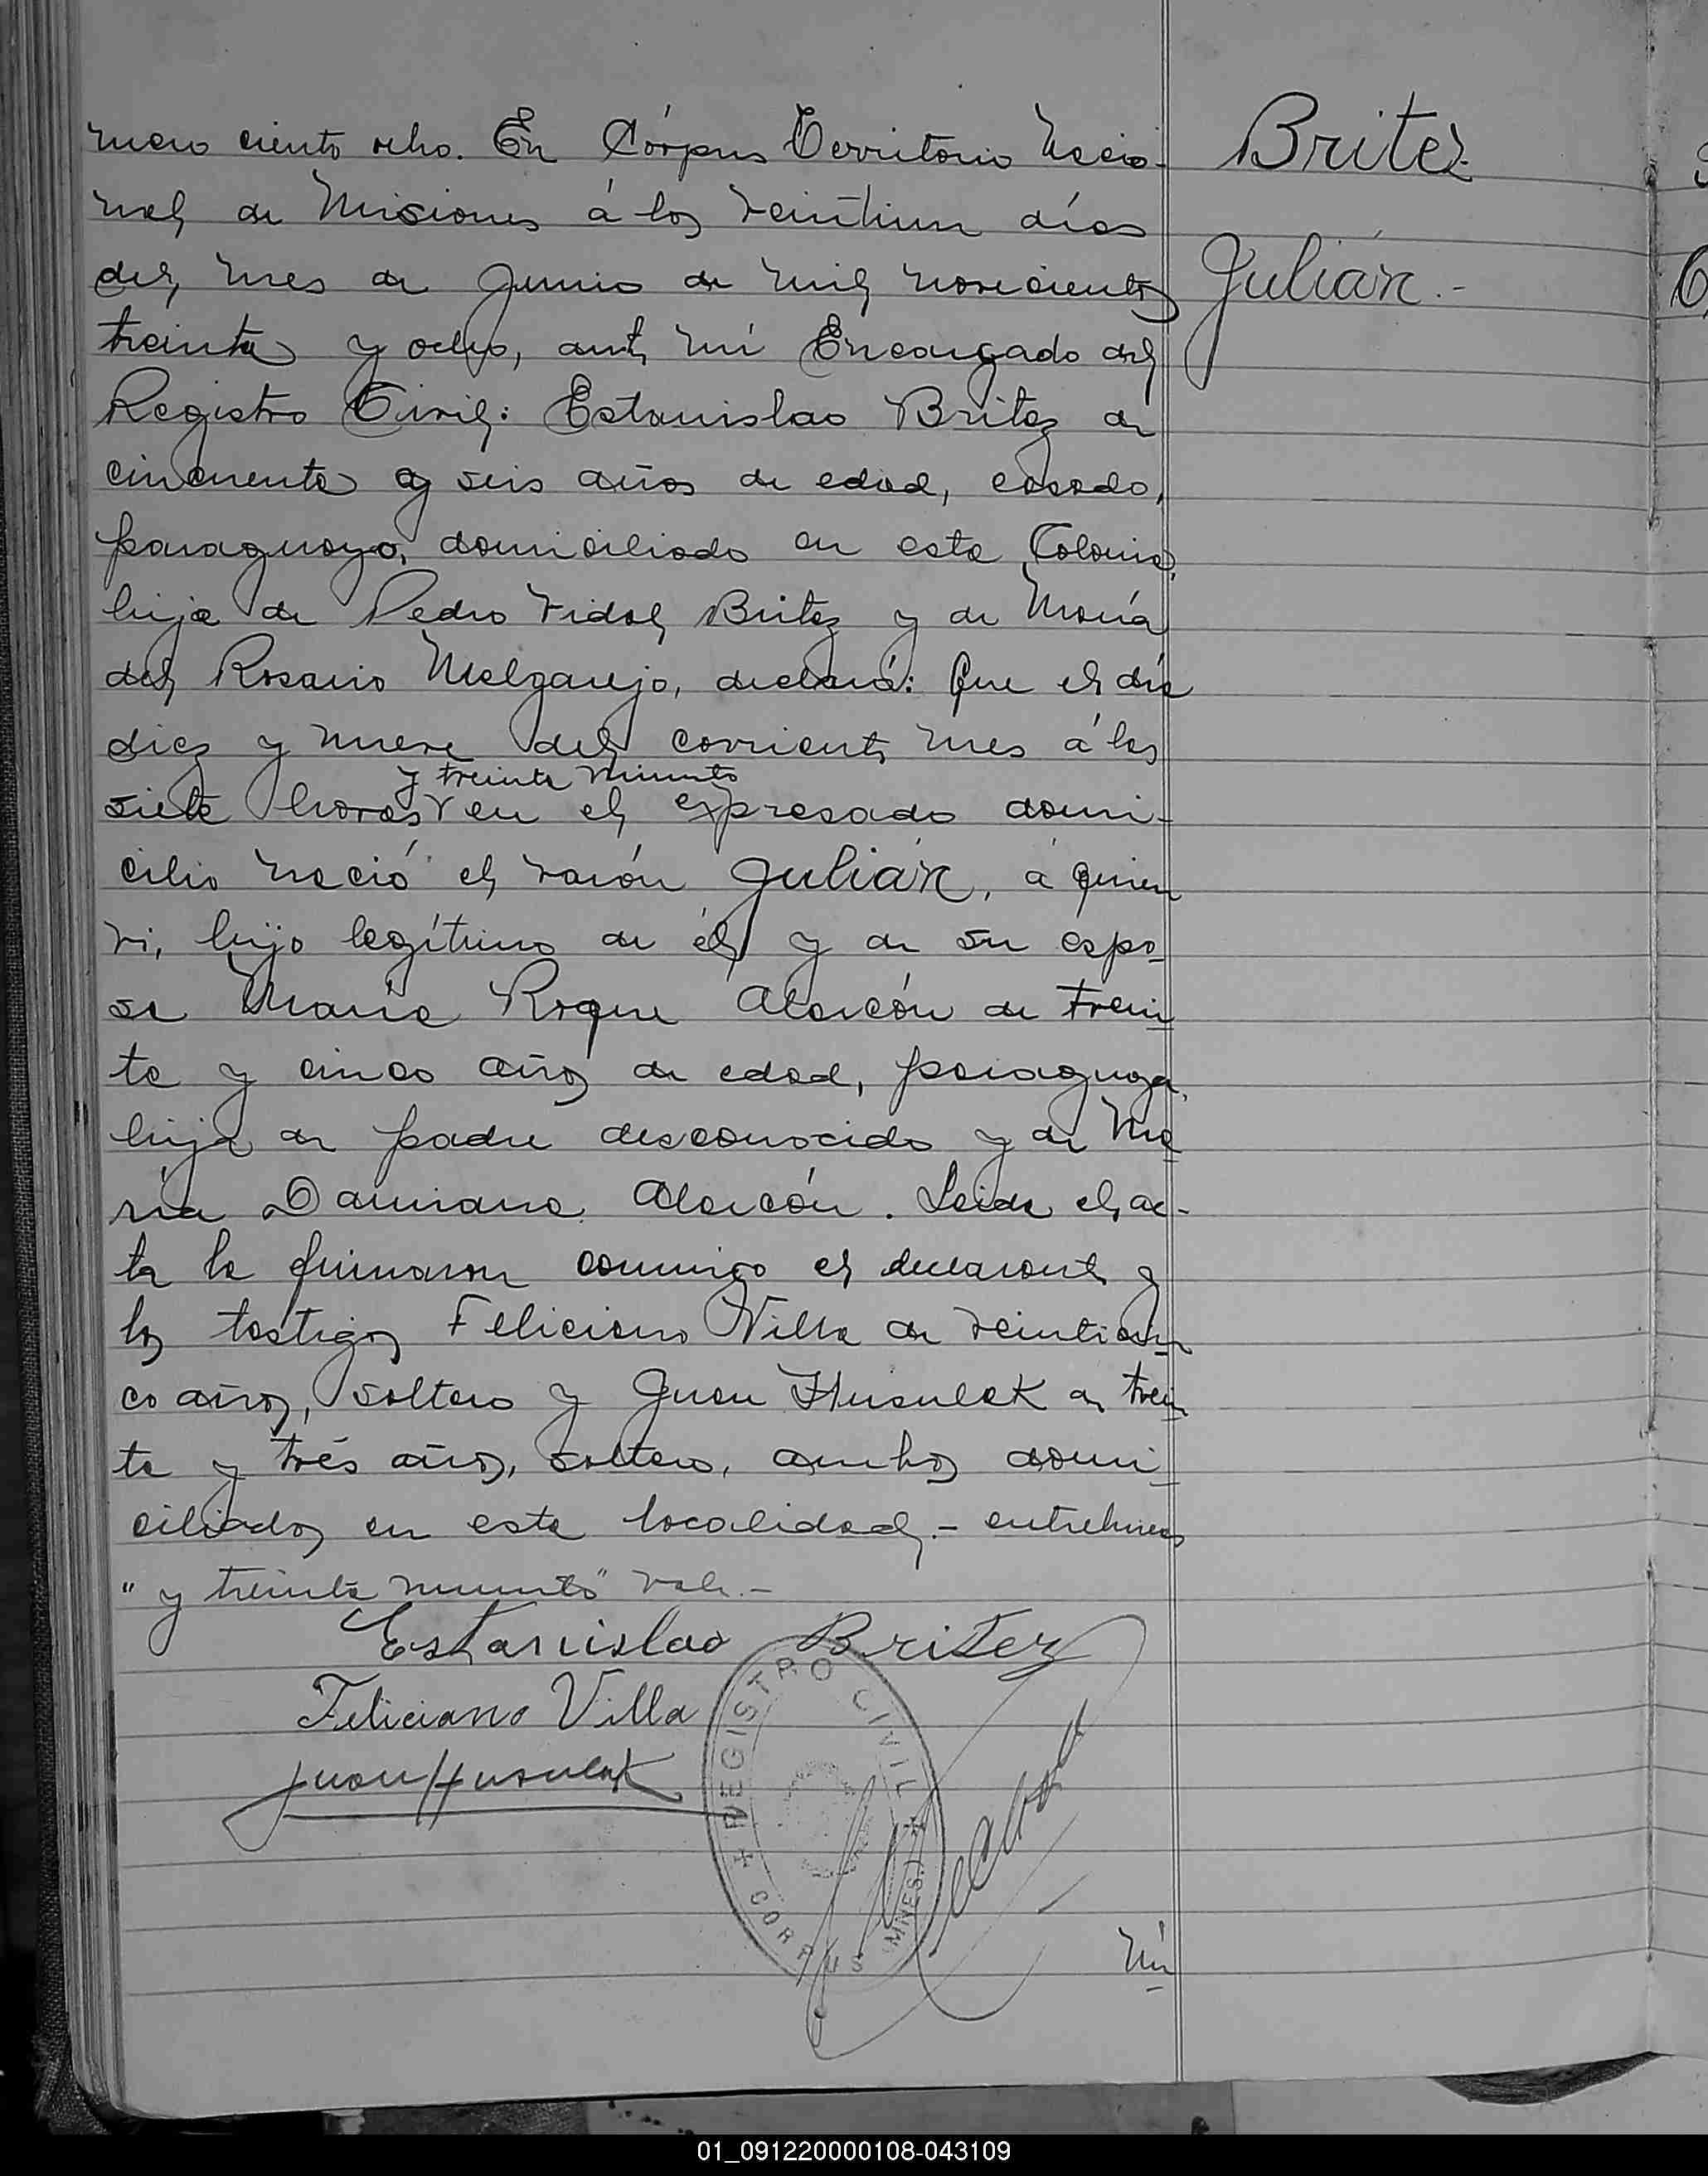 mero ciento ocho. En Córpus Territorio Nacio-
nal de Misiones á los veintiun días
del mes de Junio de mil novecientos
treinta y ocho, ante mí Encargado del
Registro Civil: Estanislao Britez de
cincuenta y seis años de edad, casado,
paraguayo, domiciliado en esta Colonia,
hijo de Pedro Vidal Britez y de María
del Rosario Melgarejo, declaró: Que el día
diez y nueve del corriente mes á las
y treinta minutos
siete horas en el expresado domi-
cilio nació el varón Julián, á quien
vi, hijo legítimo de él y de su espo-
sa María Roque Alarcón de trein
ta y cinco años de edad, paraguaya,
hija de padre desconocido y de Ma
ría Damiana Alarcón. Leida el ac-
ta la firmaron conmigo el declarante y
los testigos Feliciano Villa de veinticin
co años, soltero y Juan Husulak de trein
ta y trés años, soltero, ambos domi-
ciliados en esta localidad.- entrelineas
"y treinta minutos" vale.-
Estanislao Britez
Feliciano Villa
Juan Husulak
REGISTRO CIVIL
CORPUS (MNES.)
Nú
Britez
Julián.-
01_091220000108-043109